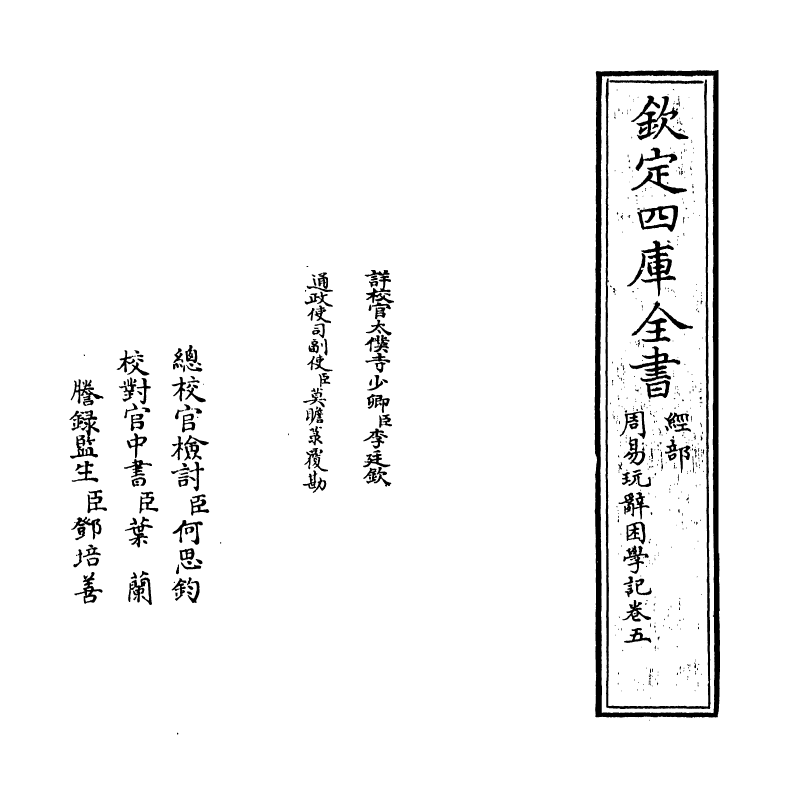 欽定四庫全書
經部
周易玩辭困學記卷五
詳校官太僕寺少卿臣李廷欽
通政使司副使臣莫瞻菉覆勘
總校官檢討臣何思鈞
校對官中書臣葉蘭
謄錄監生臣鄧培善